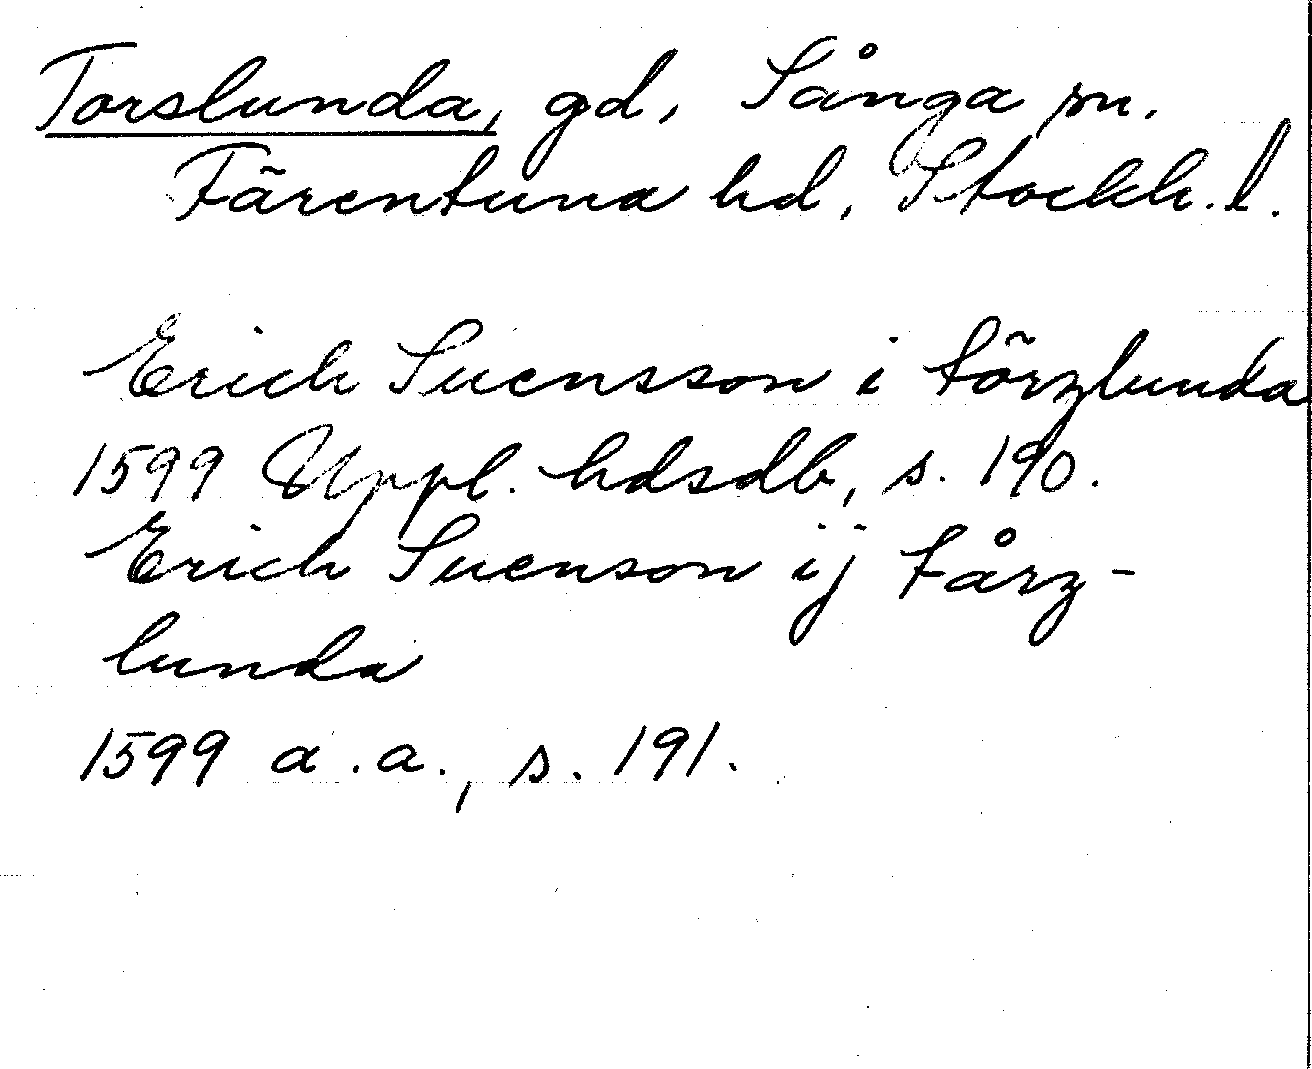 Torslunda, gd, Sånga sn.
Färentuna hd, Stockh. l.
Erich Suensson i törzlunda
1599 Uppl. hdsdb, s. 190.
Erich Suenson ij tårz-
lunda
1599 a.a., s. 191.